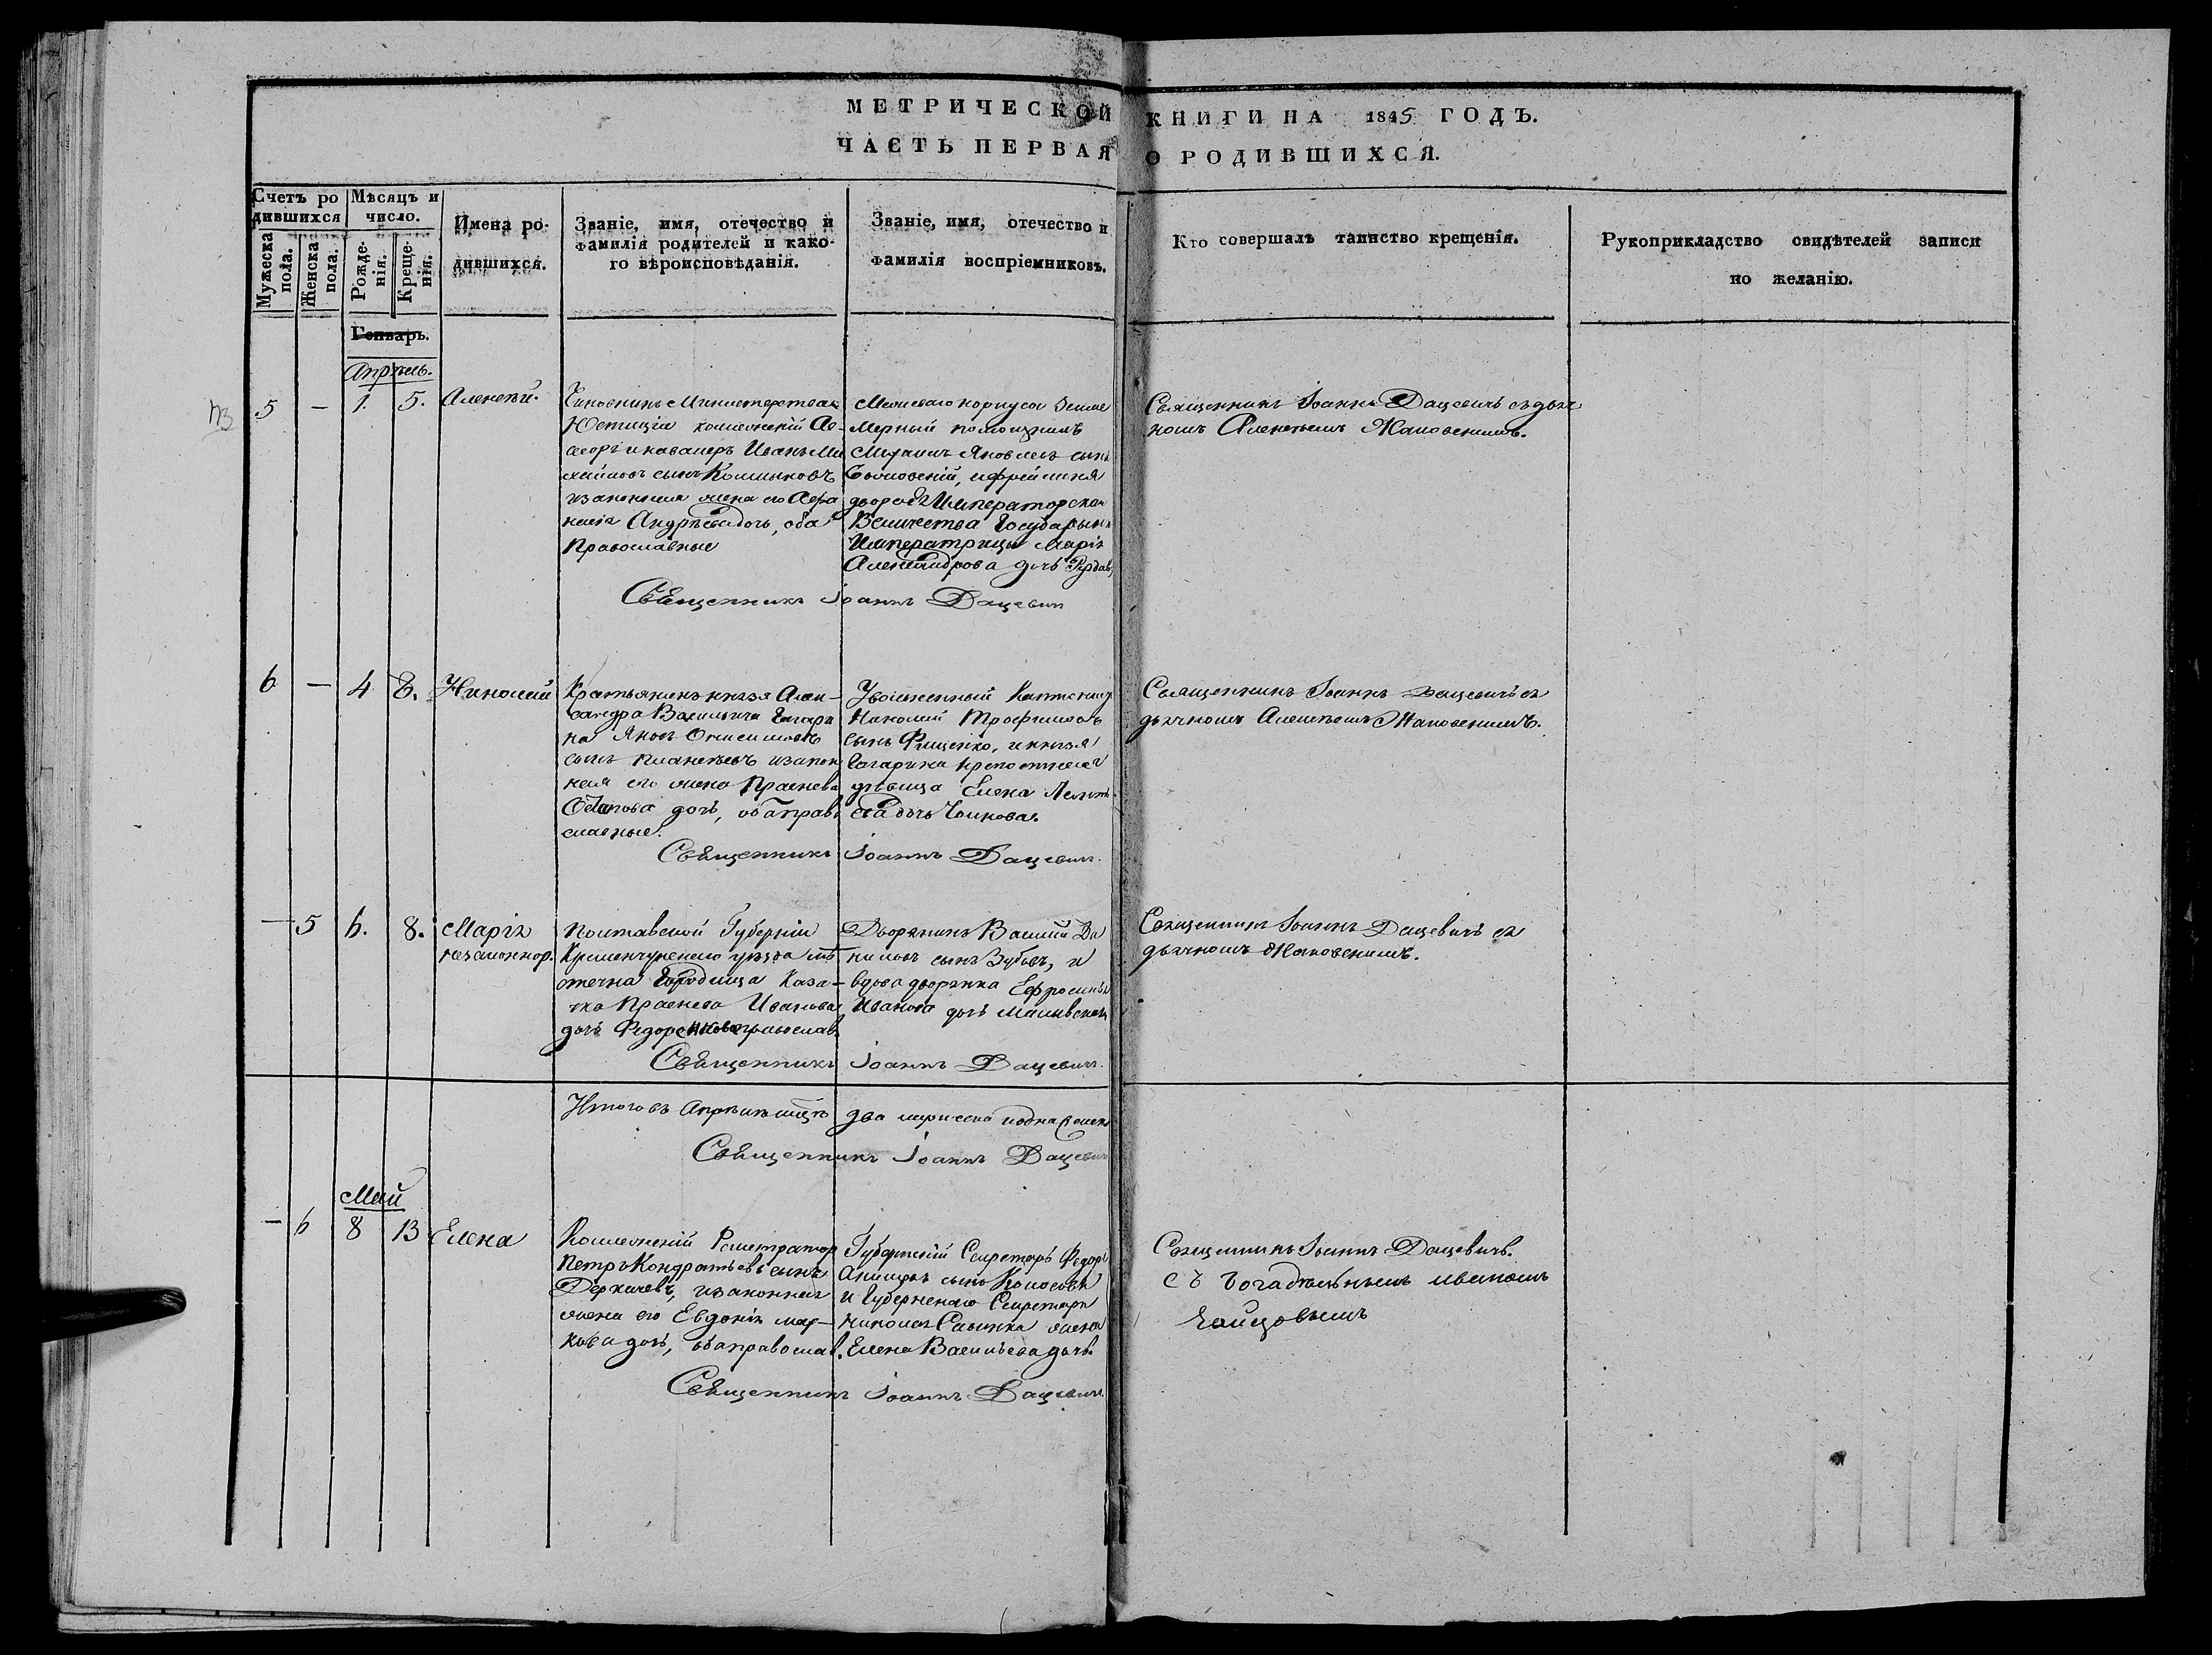 МЕТРИЧЕСКОЙ КНИГИ НА 1845 ГОДЪ.
ЧАСТЬ ПЕРВАЯ О РОДИВШИХСЯ.
Счетъ ро
дившихся
Мужеска
пола.
Женска
пола.
Мѣсяцъ и
число.
Рожде-
нія.
Креще-
нія.
Имена ро-
дившихся.
Званіе, имя, отечество и
фамилія родителей и како-
го вѣроисповѣданія.
Званіе, имя, отечество и
фамилія воспріемниковъ.
Кто совершалъ таинство крещенія.
Рукоприкладство свидѣтелей записи
по желанію.
Генварь.
Апрѣль.
5 — 1. 5. Алексѣй.
Чиновникъ Министерства
Юстиціи колежскій Ас-
сесоръ и кавалеръ Иванъ Ми
хайловъ сынъ
и законная жена его
Андрѣева дочь, оба
Православные
Межеваго корпуса Земле
Мерный помощникъ
Яковлевъ сынъ
и фрейлина
двора Ея Императорскаго
Величества Государыни
Императрицы Марія
Александрова дочь
Священникъ Іоаннъ Дацевичъ съ дьяч
комъ Алексѣемъ Маковскимъ.
Священникъ Іоаннъ Дацевичъ
6 — 4 8. Николай
Крестьянинъ князя Алек-
сандра Васильича Гагари
на Яковъ Онисимовъ
сынъ и закон
ная его жена Праскева
дочь, оба право
славные.
Уволенный
Николай Трофимовъ
сынъ Фищенко, и князя
Гагарина крепостная
дѣвица Елена
дочь
Священникъ Іоаннъ Дацевичъ съ
дьячкомъ Алексѣемъ Маковскимъ.
Священникъ Іоаннъ Дацевичъ.
— 5 6. 8. Марія
незаконнор.
Полтавской Губерніи
Кременчугскаго уѣзда мѣ
стечка Городища Каза-
чка Праскева Иванова
дочь православ
Дворянинъ Василій Да
ниловъ сынъ Зубовъ, и
вдова дворянка Ефросинья
Иванова дочь
Священникъ Іоаннъ Дацевичъ съ
дьячкомъ Маковскимъ.
Священникъ Іоаннъ Дацевичъ.
Итого въ Апрѣлѣ мцѣ два мужеска и одна женска
Священникъ Іоаннъ Дацевичъ
Май
— 6 8 13 Елена
Колежскій Регистраторъ
Петръ Кондратьевъ сынъ
Деркачевъ, и законная
жена его Евдокія Мар-
кова дочь, оба православ.
Губернскій Секретарь Федоръ
сынъ Колосовъ
и Губернскаго Секретаря
Николая жена
Елена Васильева дочь.
Священникъ Іоаннъ Дацевичъ.
съ богадѣльнымъ Иваномъ
Священникъ Іоаннъ Дацевичъ.